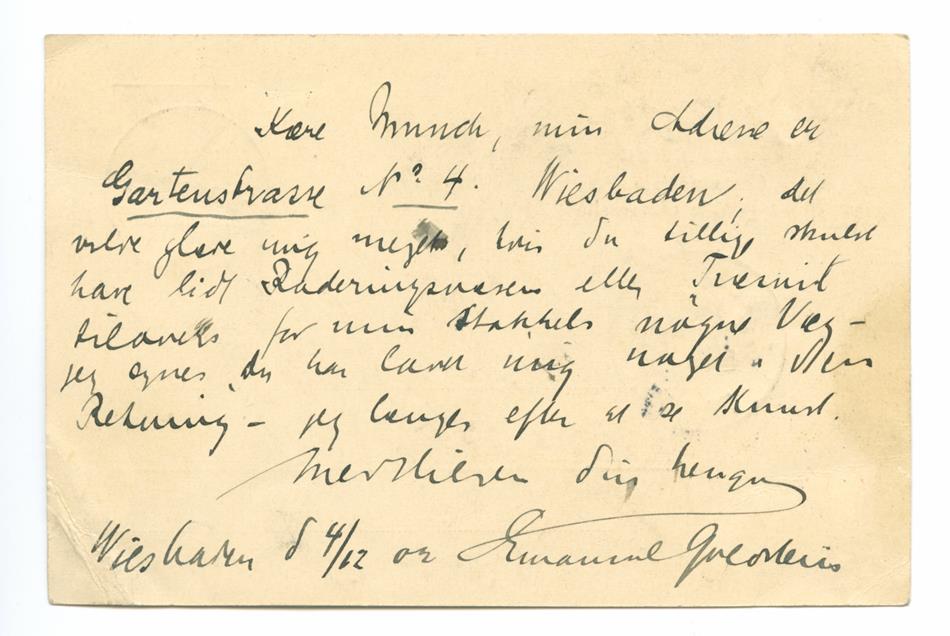 Kære Munch, min Adresse er
Gartenstrasse No 4. Wiesbaden, det
vilde glæde mig meget, hvis du tillige skulde
have lidt Raderingsvæsen eller Træsnit
tilovers for min stakkels nøgne Væg –
jeg synes, du har lovet mig noget i den
Retning – jeg længes efter at se Kunst.
Med Hilsen din hengivne
Wiesbaden d 4/12 02 Emanuel Goldstein